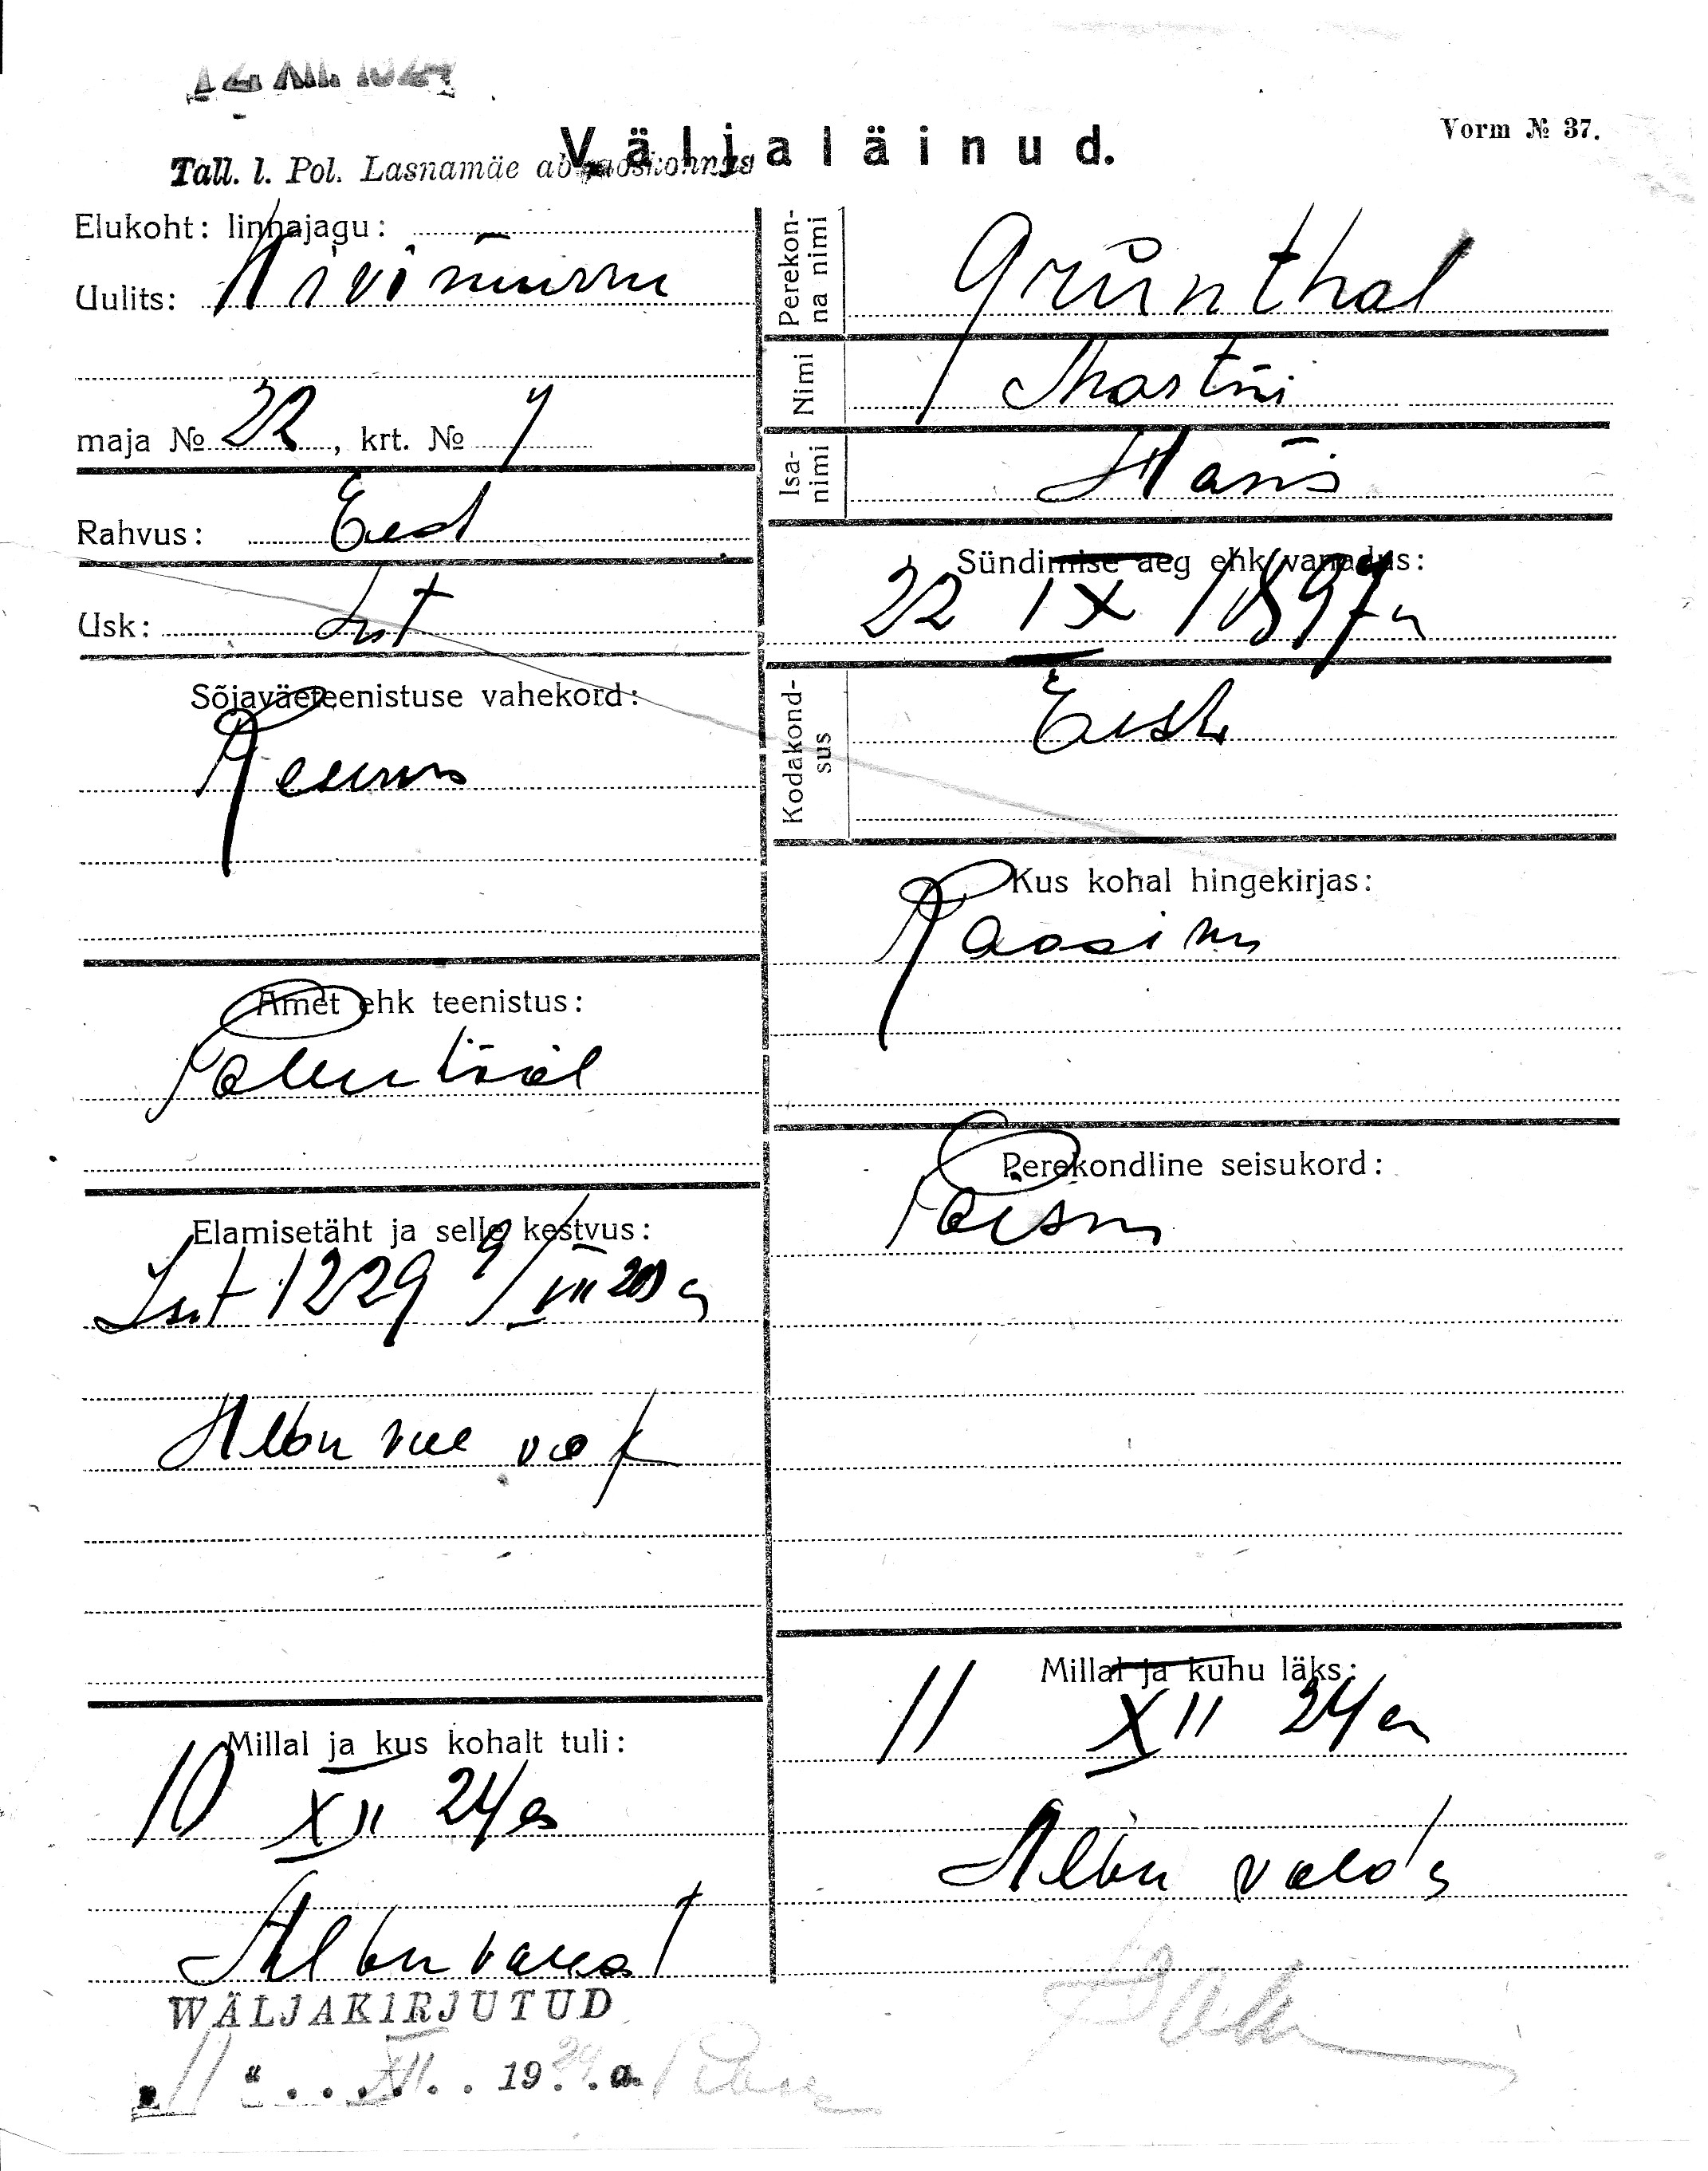 12 XII. 1924
Väljaläinud.
Vorm № 37.
Tall. l. Pol. Lasnamäe abjaoskonnas
Elukoht: linnajagu:
Uulits: Kivimurru
maja № 22, krt. № 7
Rahvus: Eest
Usk: Lut
Sõjaväeteenistuse vahekord:
Reserv
Amet ehk teenistus:
Põllutööl
Elamisetäht ja selle kestvus:
Isut 1229 9/VII 20 a
Albu val vol
Millal ja kus kohalt tuli:
10 XII 24 a
Albu vallast
WÄLJAKIRJUTUD
"11" XII 1924 a.
Perekonna nimi
Grünthal
Nimi
Martin
Isanimi
Hans
Sündimise aeg ehk vanadus:
22 IX 1897 a
Kodakondsus
Eesti
Kus kohal hingekirjas:
Raasiku
Perekondline seisukord:
Poism
Millal ja kuhu läks:
11 XII 24 a
Albu valda